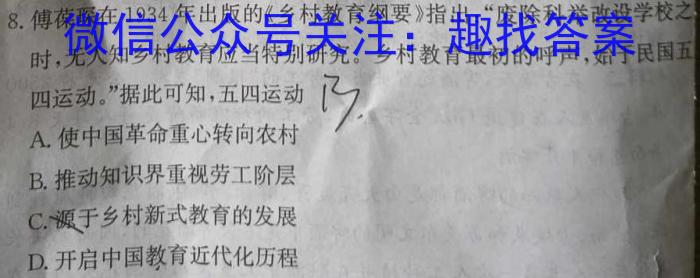 8. 傅葆琛在1934年出版的《乡村教育纲要》指出,“废除科举改设学校之
微信公众号关注:趣找答案
时,无人知乡村教育应当特别研究。乡村教育最初的呼声,始于民国五
四运动。”据此可知,五四运动
B.
A. 使中国革命重心转向农村
B. 推动知识界重视劳工阶层
C. 源于乡村新式教育的发展
D. 开启中国教育近代化历程